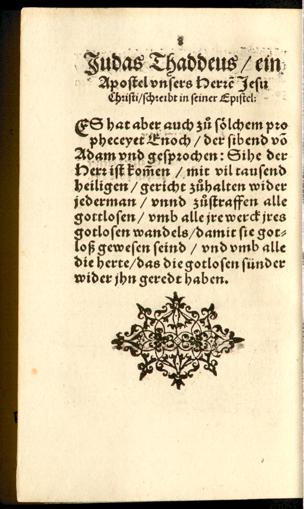 Judas Thaddeus / ein
Apostel vnsers Herrē Jesu
Christi/schreibt in seiner Epistel:
ES hat aber auch zů sölchem pro
pheceyet Enoch / der sibend vō
Adam vnd gesprochen: Sihe der
Herr ist kom̄en / mit vil tausend
heiligen / gericht zůhalten wider
jederman / vnnd zůstraffen alle
gottlosen / vmb alle jre werck jres
gotlosen wandels/damit sie got-
loß gewesen seind / vnd vmb alle
die herte/das die gotlosen sünder
wider jhn geredt haben.